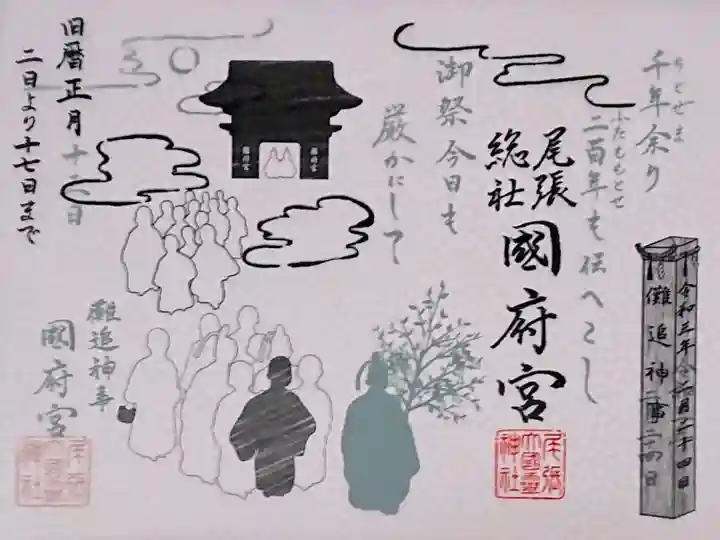 千年余り
ちとせま
二百年も伝へこし
ふたももとせ
御祭今日も
厳かにして
尾張
総社
國府宮
尾張
大國霊
神社
旧暦正月十三日
二日より十七日まで
儺追神事
國府宮
尾張
大國霊
神社
儺追神事
令和三年二月二十四日